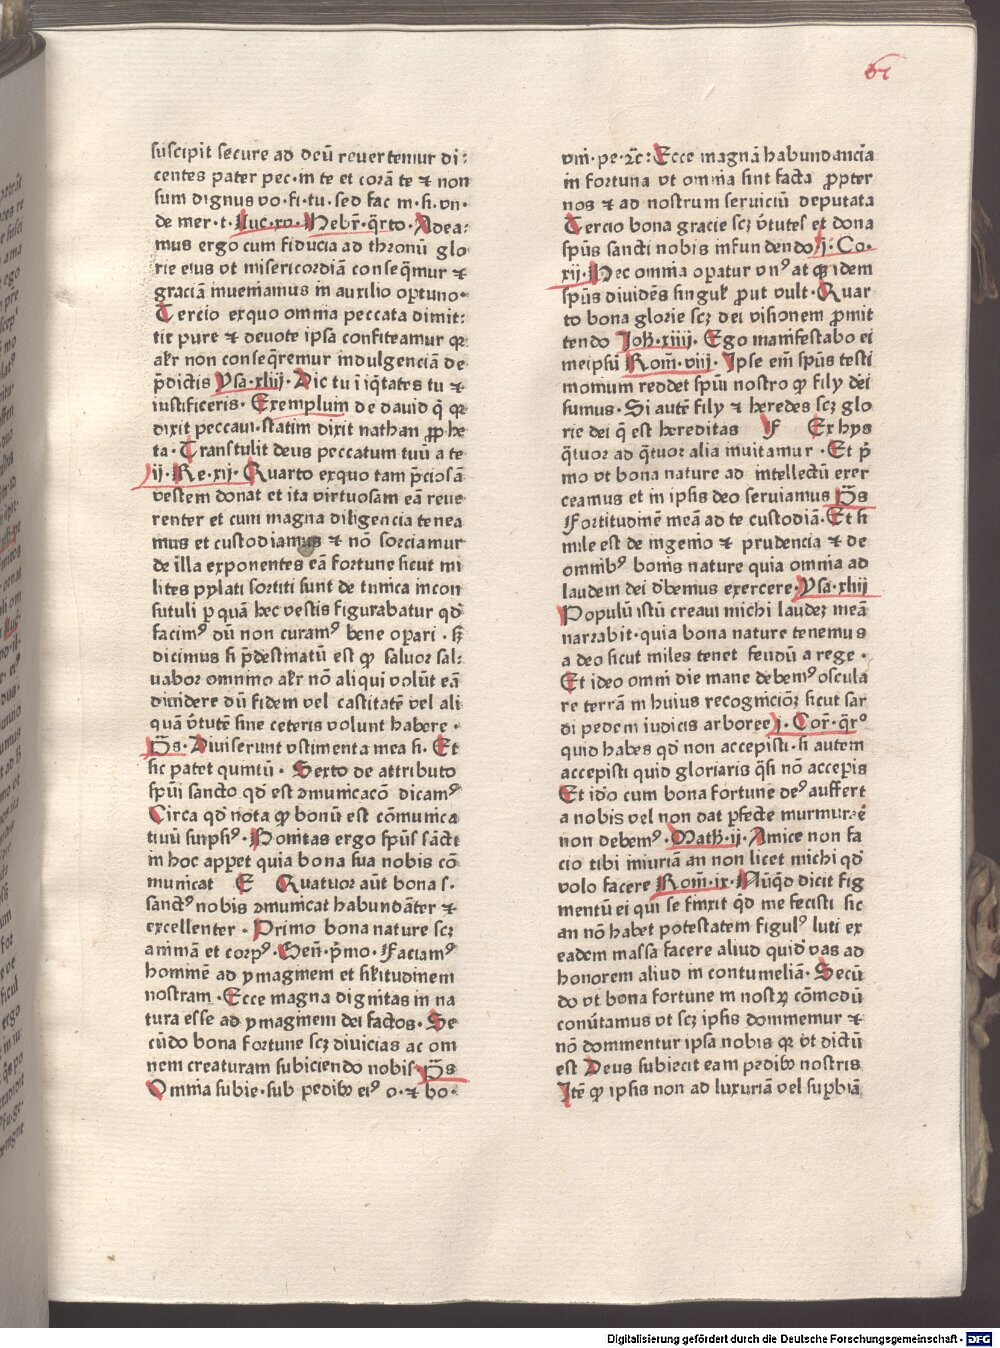 61
suscipit secure ad deū reuertemur di:
centes pater pec·in te et corā te ⁊ non
sum dignus vo·fi·tu·sed fac m·s·vn·
de mer·t·Luc·xv·Hebr̄·q̄rto·Adea:
mus ergo cum fiducia ad thronū glo
rie eius vt misericordiā conseq̄mur ⁊
graciā inueniamus in auxilio oꝑtuno·
Tercio exquo omnia peccata dimit:
tit pure ⁊ deuote ipsa confiteamur qꝛ
alr̄ non conseq̄remur indulgenciā de
p̄dictis Ysa·xliij·Dic tu i īiq̄tates tu ⁊
iustificeris·Exemplum de dauid q̄ qꝛ
dixit peccaui·statim dixit nathan ꝓphe
ta·Transtulit deus peccatum tuū a te
ij·Re·xij·Quarto exquo tam p̄ciosā
vestem donat et ita virtuosam eā reue
renter et cum magna diligencia tenea
mus et custodiamus ⁊ nō sorciamur
de illa exponentes eā fortune sicut mi
lites pylati sortiti sunt de tunica incon
sutuli ꝑ quā hec vestis figurabatur qd̄
facimꝰ dū non curamꝰ bene oꝑari·sꝫ
dicimus si p̄destinatū est ꝙ saluor sal:
uabor omnino alr̄ nō aliqui volūt eā
diuidere dū fidem vel castitatē vel ali
quā v̄tutē sine ceteris volunt habere·
p̄s·Diuiserunt vstimenta mea s·Et
sic patet quintū·Sexto de attributo
spūi sancto qd̄ est ꝯmunicacō dicamꝰ
Circa qd̄ nota ꝙ bonū est cōmunica
tiuū suipsiꝰ·Bonitas ergo spūs sācti
in hoc apꝑet quia bona sua nobis cō
municat E Quatuor aūt bona s·
sanctꝰ nobis ꝯmunicat habundāter ⁊
excellenter·Primo bona nature scꝫ
animā et corpꝰ·Gen̄·p̄mo·Faciamꝰ
hominē ad ymaginem et silitudinem
nostram·Ecce magna dignitas in na
tura esse ad ymaginem dei factos·Se
cūdo bona fortune scꝫ diuicias ac om
nem creaturam subiciendo nobis p̄s
Omnia subie·sub pedibꝫ eiꝰ o·⁊ bo·
vni·pe·⁊c̄:Ecce magnā habundanciā
in fortuna vt omnia sint facta ꝓpter
nos ⁊ ad nostrum seruiciū deputata
Tercio bona gracie scꝫ v̄tutes et dona
spūs sancti nobis infundendo j·Co·
xij·Hec omnia oꝑatur vnꝰ atqꝫ idem
spūs diuidēs singul̄ ꝓut vult·Quar
to bona glorie scꝫ dei visionem ꝓmit
tendo Joh̄·xiiij·Ego manifestabo ei
meipsū Rom̄·viij·Ipse em̄ spūs testi
monium reddet spūi nostro ꝙ filij dei
sumus·Si autē filij ⁊ heredes scꝫ glo
rie dei q̄ est hereditas F Ex hijs
q̄tuor ad q̄tuor alia inuitamur·Et p̄
mo vt bona nature ad intellectū exer
ceamus et in ipsis deo seruiamus p̄s
Fortitudinē meā ad te custodiā·Et si
mile est de ingenio ⁊ prudencia ⁊ de
omnibꝰ bonis nature quia omnia ad
laudem dei dēbemus exercere·Ysa·xliij
Populū istū creaui michi laudeꝫ meā
narrabit·quia bona nature tenemus
a deo sicut miles tenet feudū a rege·
Et ideo omni die mane debemꝰ oscula
re terrā in huius recognicioꝫ sicut sar
di pedem iudicis arboree j·Cor̄·q̄rꝰ
quid habes qd̄ non accepisti·si autem
accepisti quid gloriaris q̄si nō accepis
Et idō cum bona fortune deꝰ auffert
a nobis vel non dat ꝑfecte murmurare
non debemꝰ·Math̄·ij·Amice non fa
cio tibi iniuriā an non licet michi qd̄
volo facere Rom̄·ix·Nūqd̄ dicit fig
mentū ei qui se finxit q̄d me fecisti sic
an nō habet potestatem figulꝰ luti ex
eadem massa facere aliud quid̄ vas ad
honorem aliud in contumeliā·Secū
do vt bona fortune in nostꝝ cōmodū
conūtamus vt scꝫ ipsis dominemur ⁊
nō dominentur ipsa nobis qꝛ vt dictū
est Deus subiecit eam pedibꝫ nostris
Itē ꝙ ipsis non ad luxuriā vel suꝑbiā
Digitalisierung gefördert durch die Deutsche Forschungsgemeinschaft - DFG